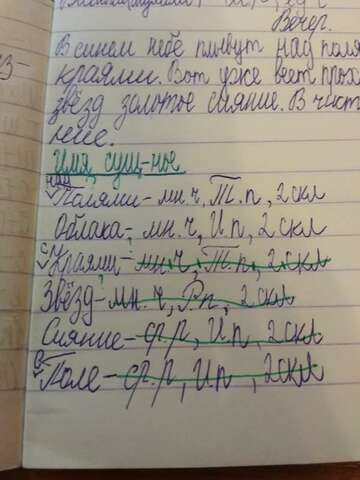 Вечер.
В синем небе плывут над поля
краями. Вот уже веет прох
звёзд золотое сияние. В чист
ние.
Имя сущ-ное
над
Полями - мн.ч, Т.п, 2 скл
Облака - мн.ч, И.п, 2 скл
с
Краями - мн.ч, Т.п, 2 скл
Звёзд - мн.ч, Р.п, 2 скл
Сияние - ср.р, И.п, 2 скл
в
Поле - ср.р, И.п, 2 скл